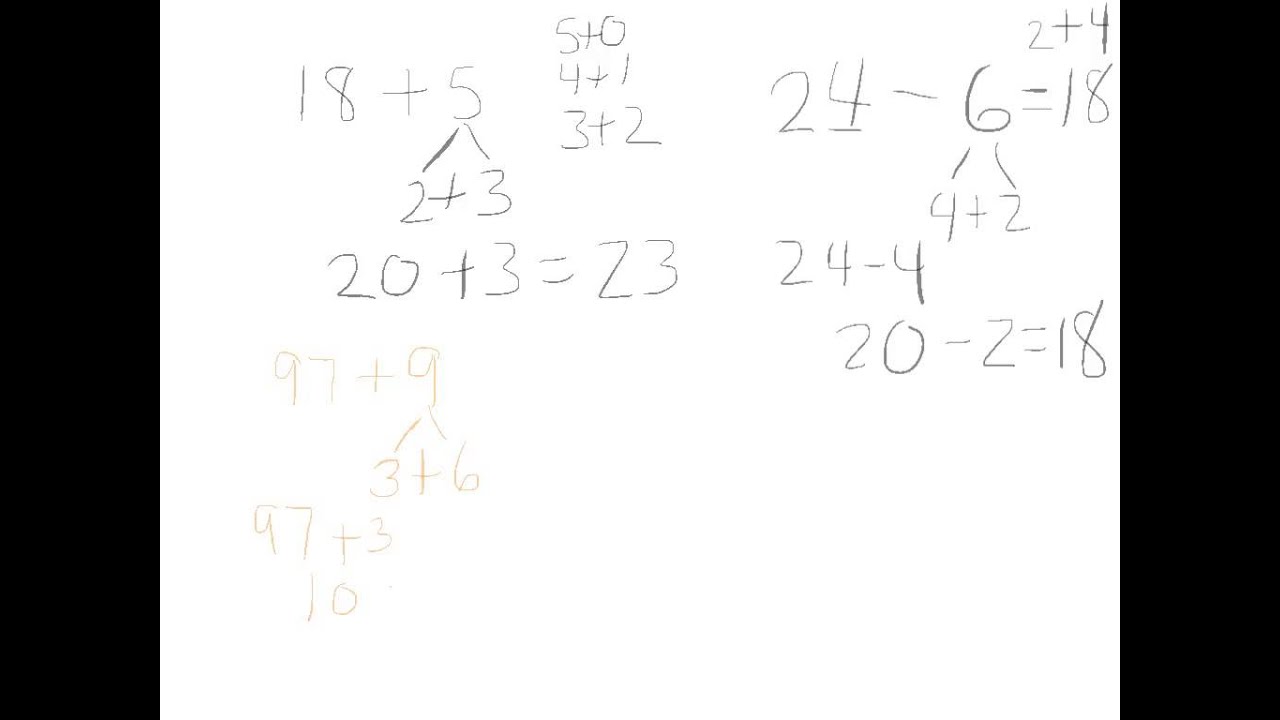 18 + 5
5+0
4+1
3+2
2+3
20+3=23
2+4
24 - 6=18
4+2
24-4
20-2=18
97+9
3+6
97+3
10